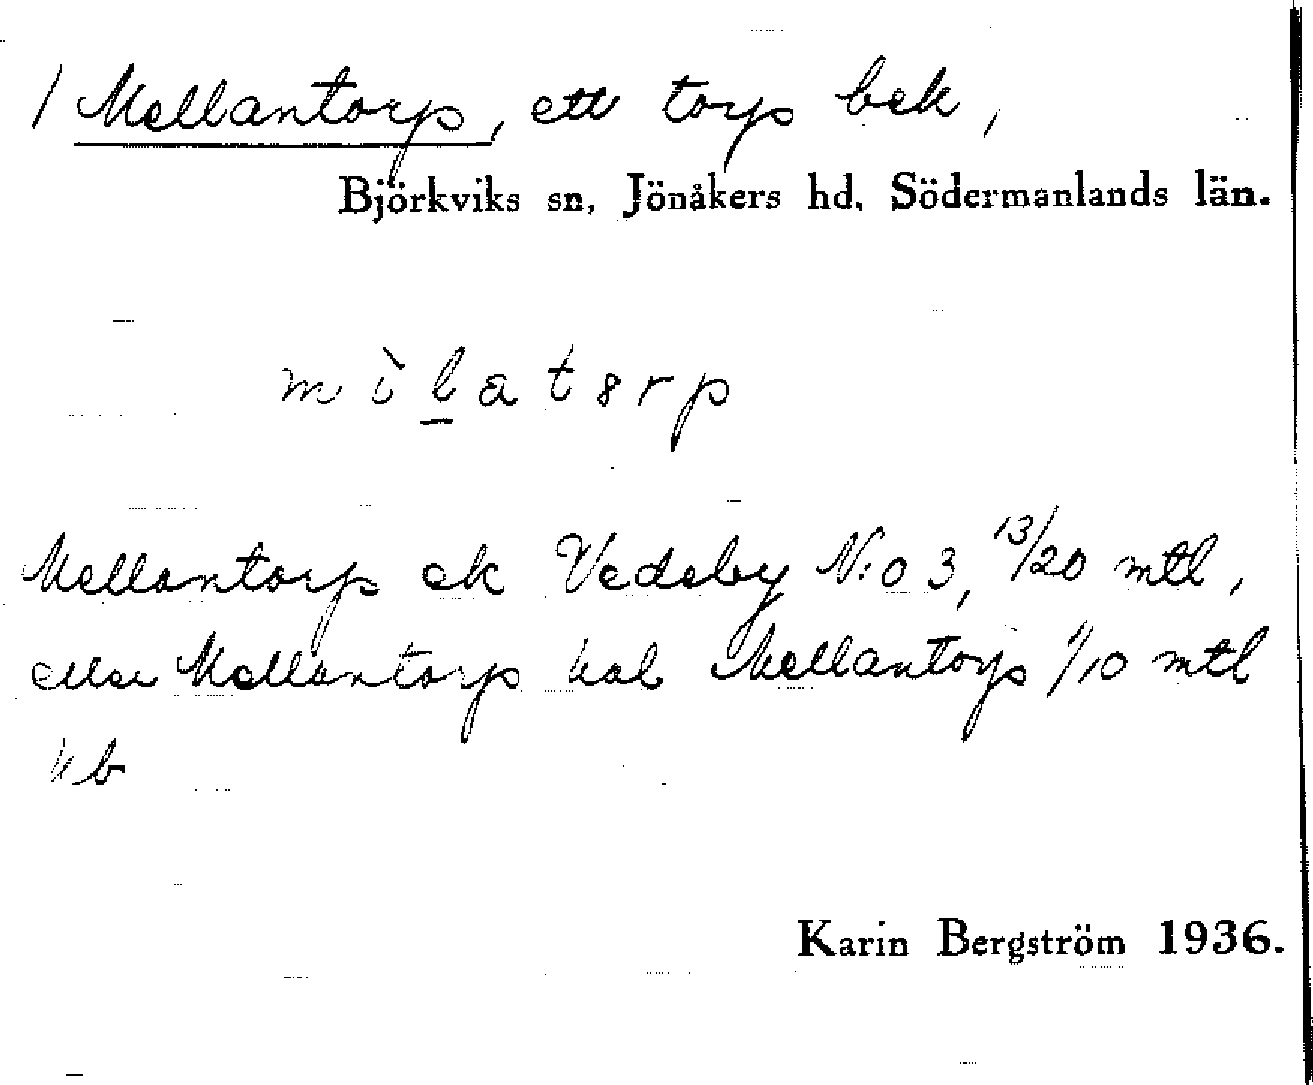 1 Mellantorp, ett torp bek,
Björkviks sn, Jönåkers hd. Södermanlands län.
m ì l a t ɞ r p
Mellantorp ek Vedeby N:o 3, 13/20 mtl,
eller Mellantorp hal Mellantorp 1/10 mtl
kb
Karin Bergström 1936.